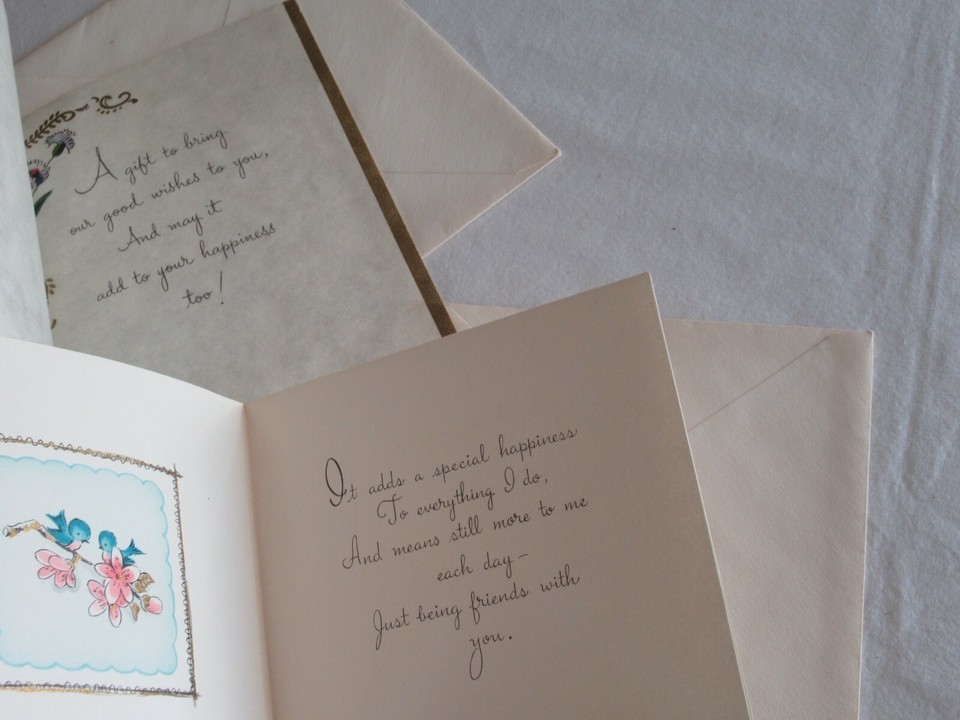 A gift to bring
our good wishes to you,
And may it
add to your happiness
too!
It adds a special happiness
To everything I do,
And means still more to me
each day—
Just being friends with
you.